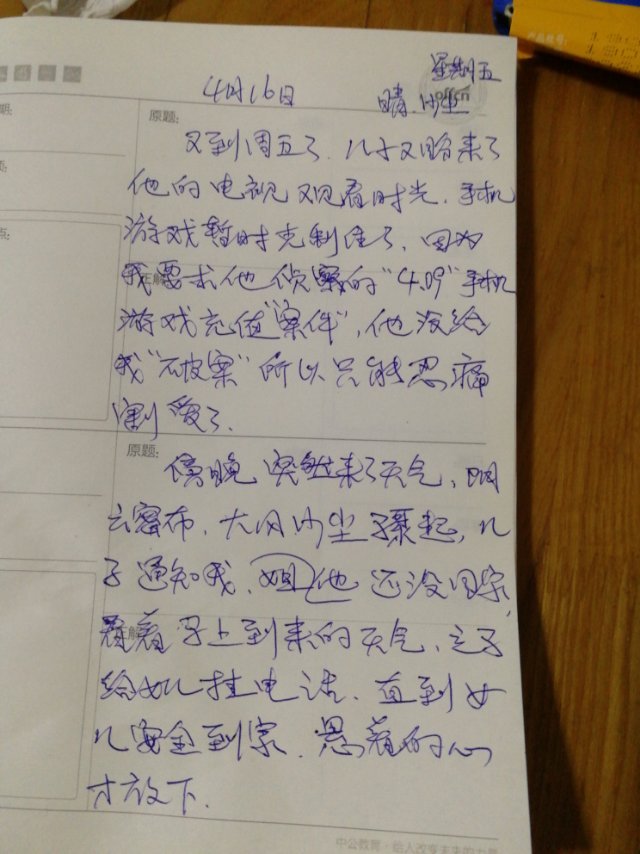 星期五
4月16日 晴.沙尘
offcn
原题:
又到周五了.儿子又盼来了
他的电视观看时光.手机
游戏暂时克制住了.因为
我要求他侦察的"4.09"手机
游戏充值"案件",他没给
我"破案"所以只能忍痛
割爱了.
原题:
傍晚突然来了天气,阴
云密布.大风沙尘骤起,儿
子通知我.姐他还没回家,
看着马上到来的天气,立马
给女儿挂电话.直到女
儿安全到家.悬着的心
才放下.
中公教育·给人改变未来的力量